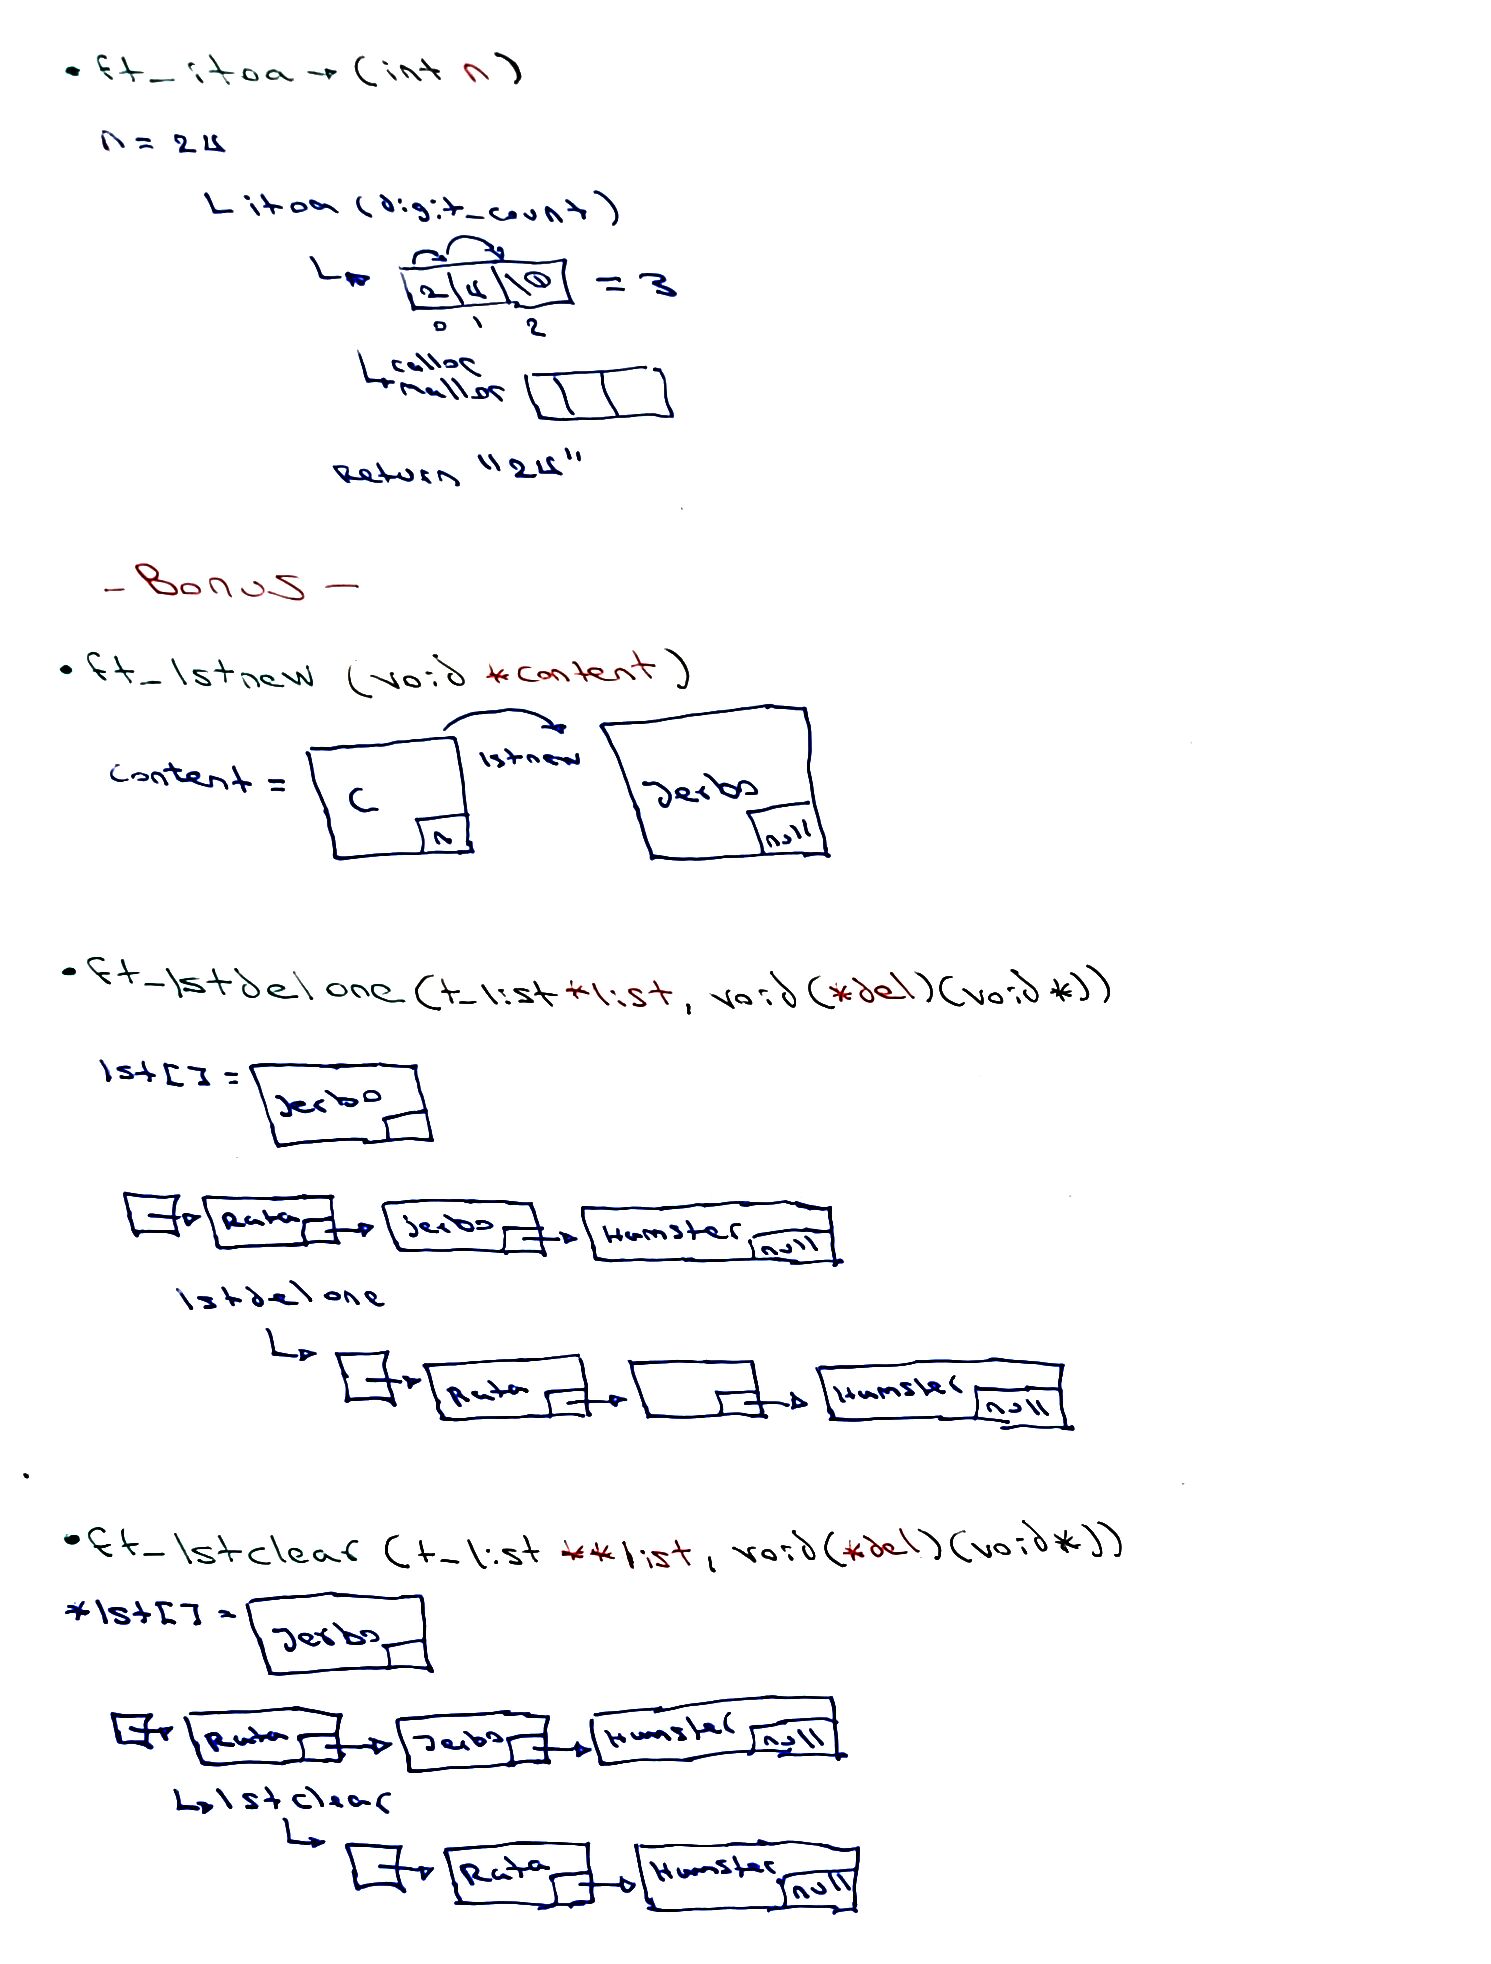 • ft_itoa → (int n)
n = 24
itoa (digit_count)
2 4 \0 = 3
0 1 2
calloc
malloc
Return "24"
- Bonus -
• ft_lstnew (void *content)
content = C n lstnew Jerbo null
• ft_lstdelone (t_list *list, void (*del)(void *))
lst[] = Jerbo
Rata Jerbo Hamster null
lstdelone
Rata Hamster null
• ft_lstclear (t_list **list, void (*del)(void *))
*lst[] = Jerbo
Rata Jerbo Hamster null
lstclear
Rata Hamster null